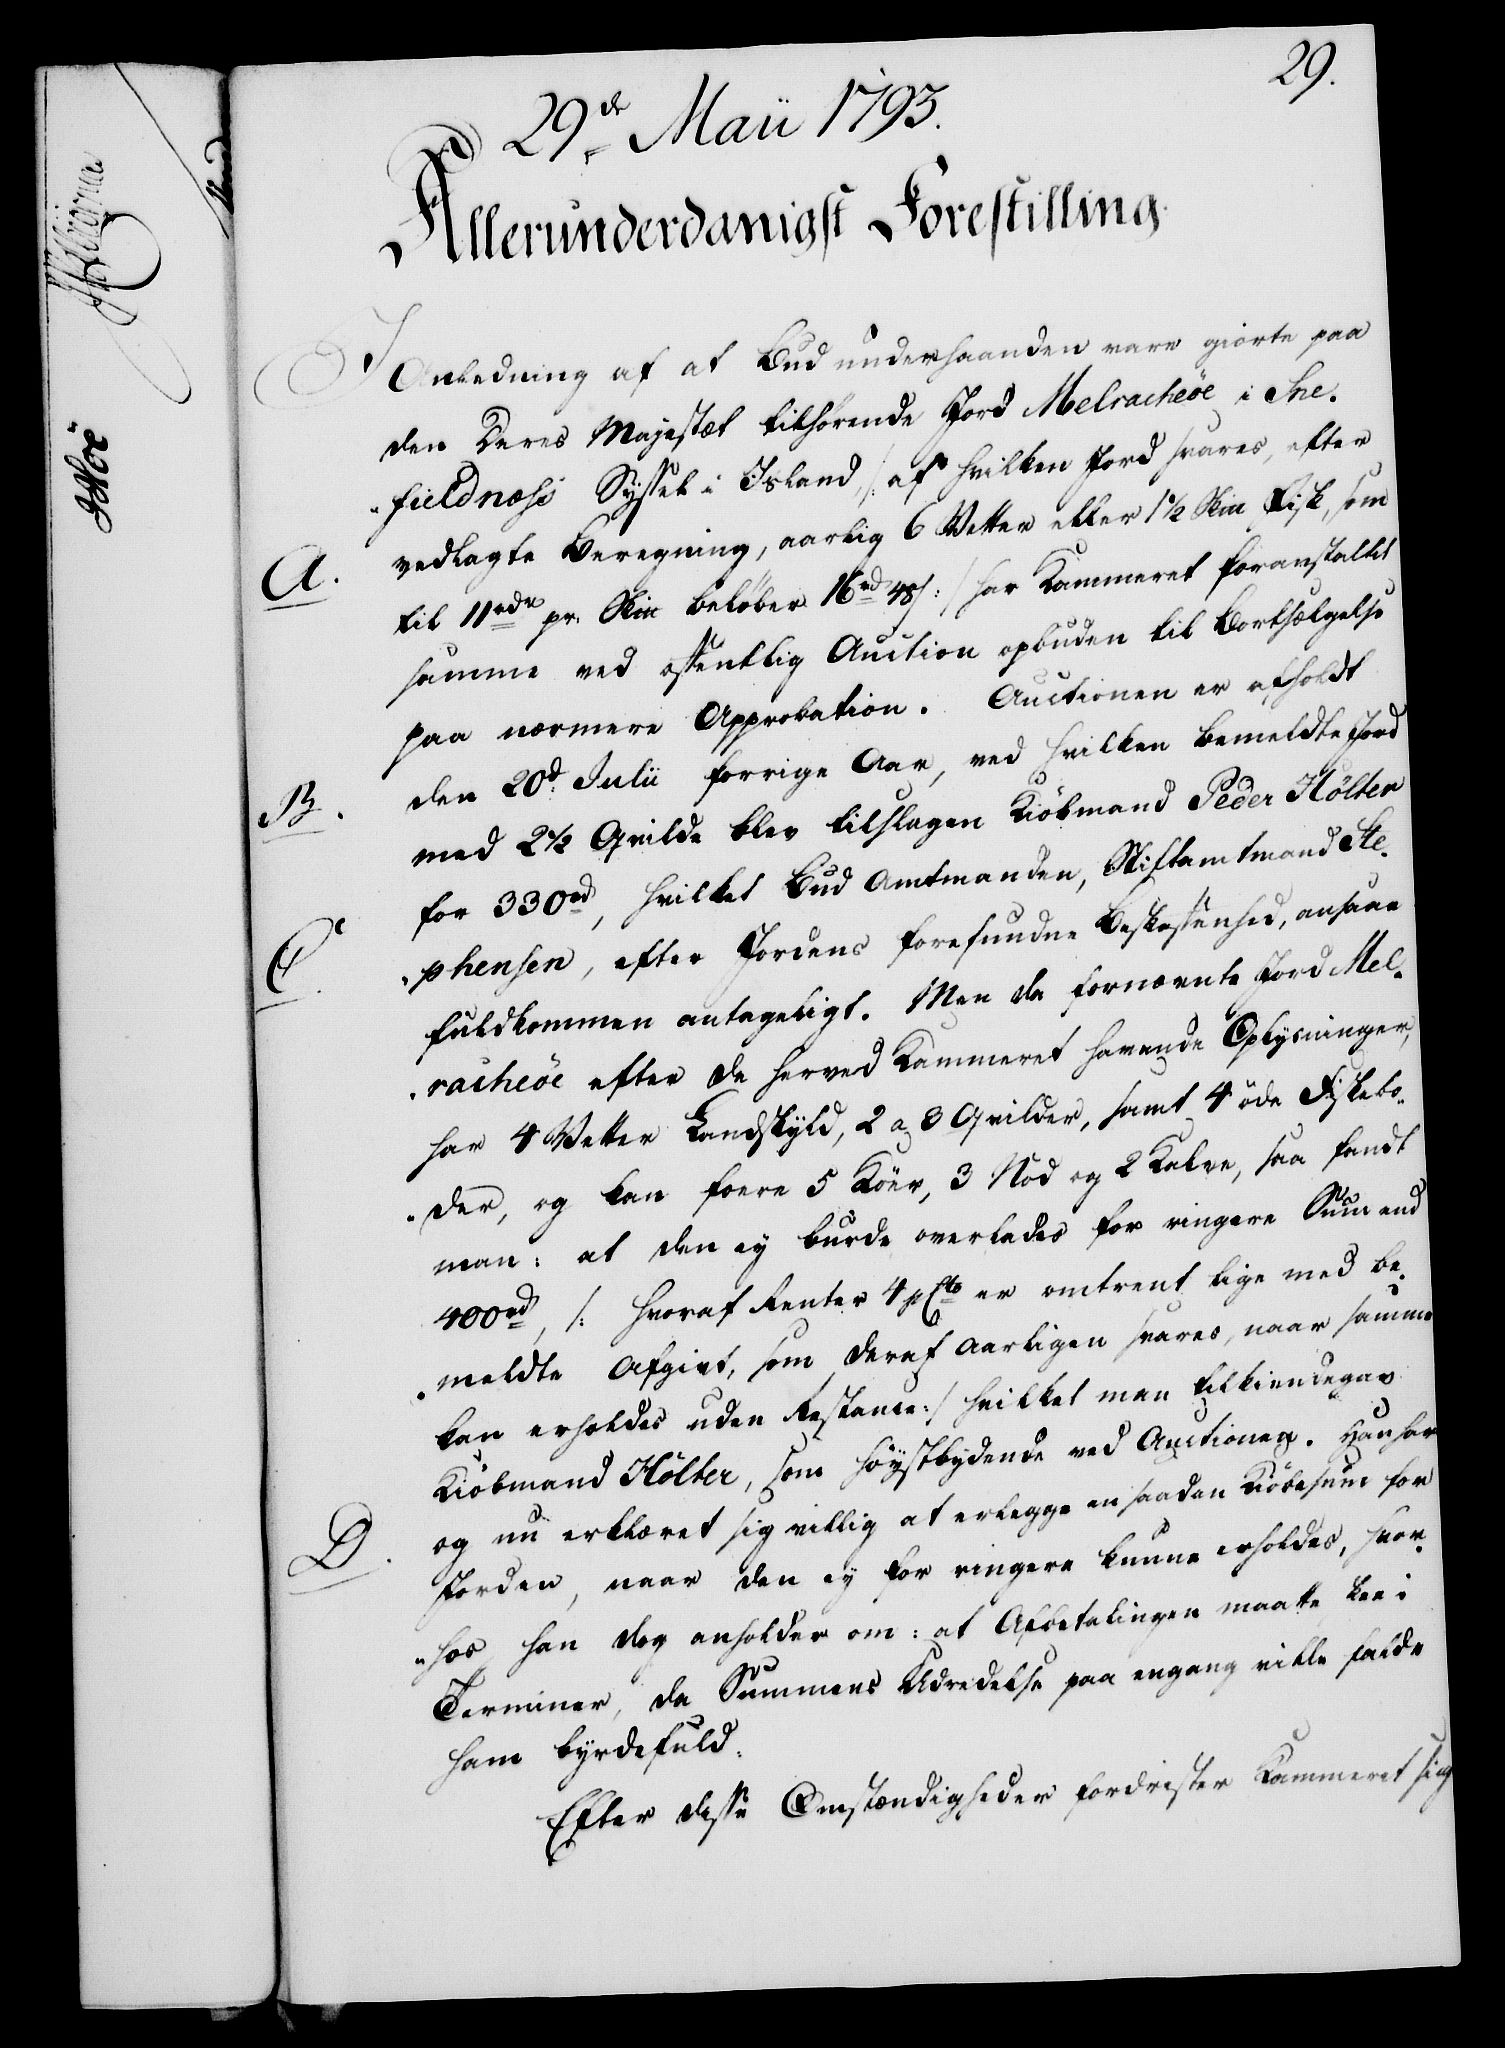 29.
29de Maii 1793.
Allerunderdanigst Forestilling.
I Anledning af at Bud underhaanden vare giorte paa
den Deres Majestæt tilhørende Jord Melracheöe i Sne-
-fieldnæss Syssel i Island, /: af hvilken Jord svares, efter
A. vedlagte Beregning, aarlig 6 Vetter eller 1½ Sk℔ Fisk, som
til 11rdr pr. Sk℔ beløber 16rd 48s :/ har Kammeret foranstaltet
samme ved offentlig Auction opbuden til Bortsælgelse
paa nærmere Approbation. Auctionen er afholdt
B. den 20d. Julii forrige Aar, ved hvilken bemeldte Jord
med 2½ Qvilde blev tilslagen Kiöbmand Peder Hölter
for 330rd, hvilket Bud Amtmanden, Stiftamtmand Ste-
C. -phensen, efter Jordens forefundne Beskaffenhed, ansaae
fuldkommen antageligt. Men da fornævnte Jord Mel-
-racheöe efter de herved Kammeret havende Oplysninger,
har 4 Vetter Landskyld, 2 a 3 Qvilder, samt 4 öde Fiskebo-
-der, og kan foere 5 Köer, 3 Nöd og 2 Kalve, saa fandt
man: at den ey burde overlades for ringere Sum end
400rd, /: hvoraf Renter 4 pCto er omtrent lige med be-
-meldte Afgivt, som deraf aarligen svares, naar samme
kan erholdes uden Restance :/ hvilket man tilkiendegav
Kiöbmand Hölter, som höystbydende ved Auctionen. Han har
D. og nu erklæret sig villig at erlegge en saadan Kiöbesum for
Jorden, naar den ey for ringere kunne erholdes, hvor-
-hos han dog anholder om: at Afbetalingen maatte skee i
Terminer, da Summens Udredelse paa engang ville falde
ham byrdefuld.
Efter disse Omstændigheder fordrister Kammeret sig